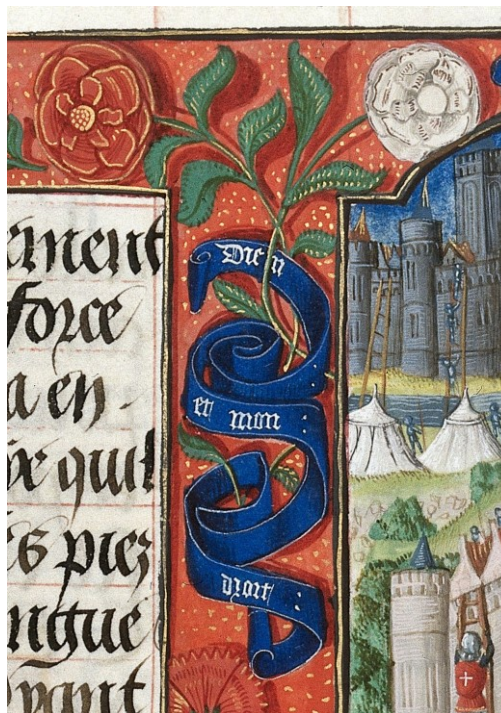 ement
force
a en
quil
es piez
ngue
Dieu
et mon :
droit :